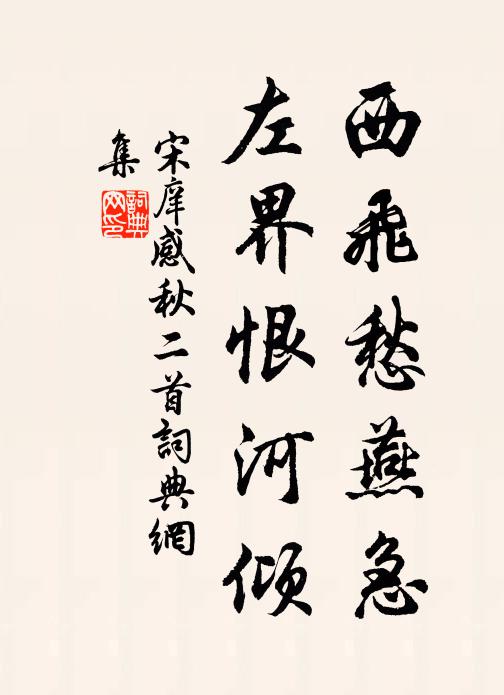 西飛愁燕急
左界恨河傾
宋庠感秋二首詞典網
集
詞典
网印